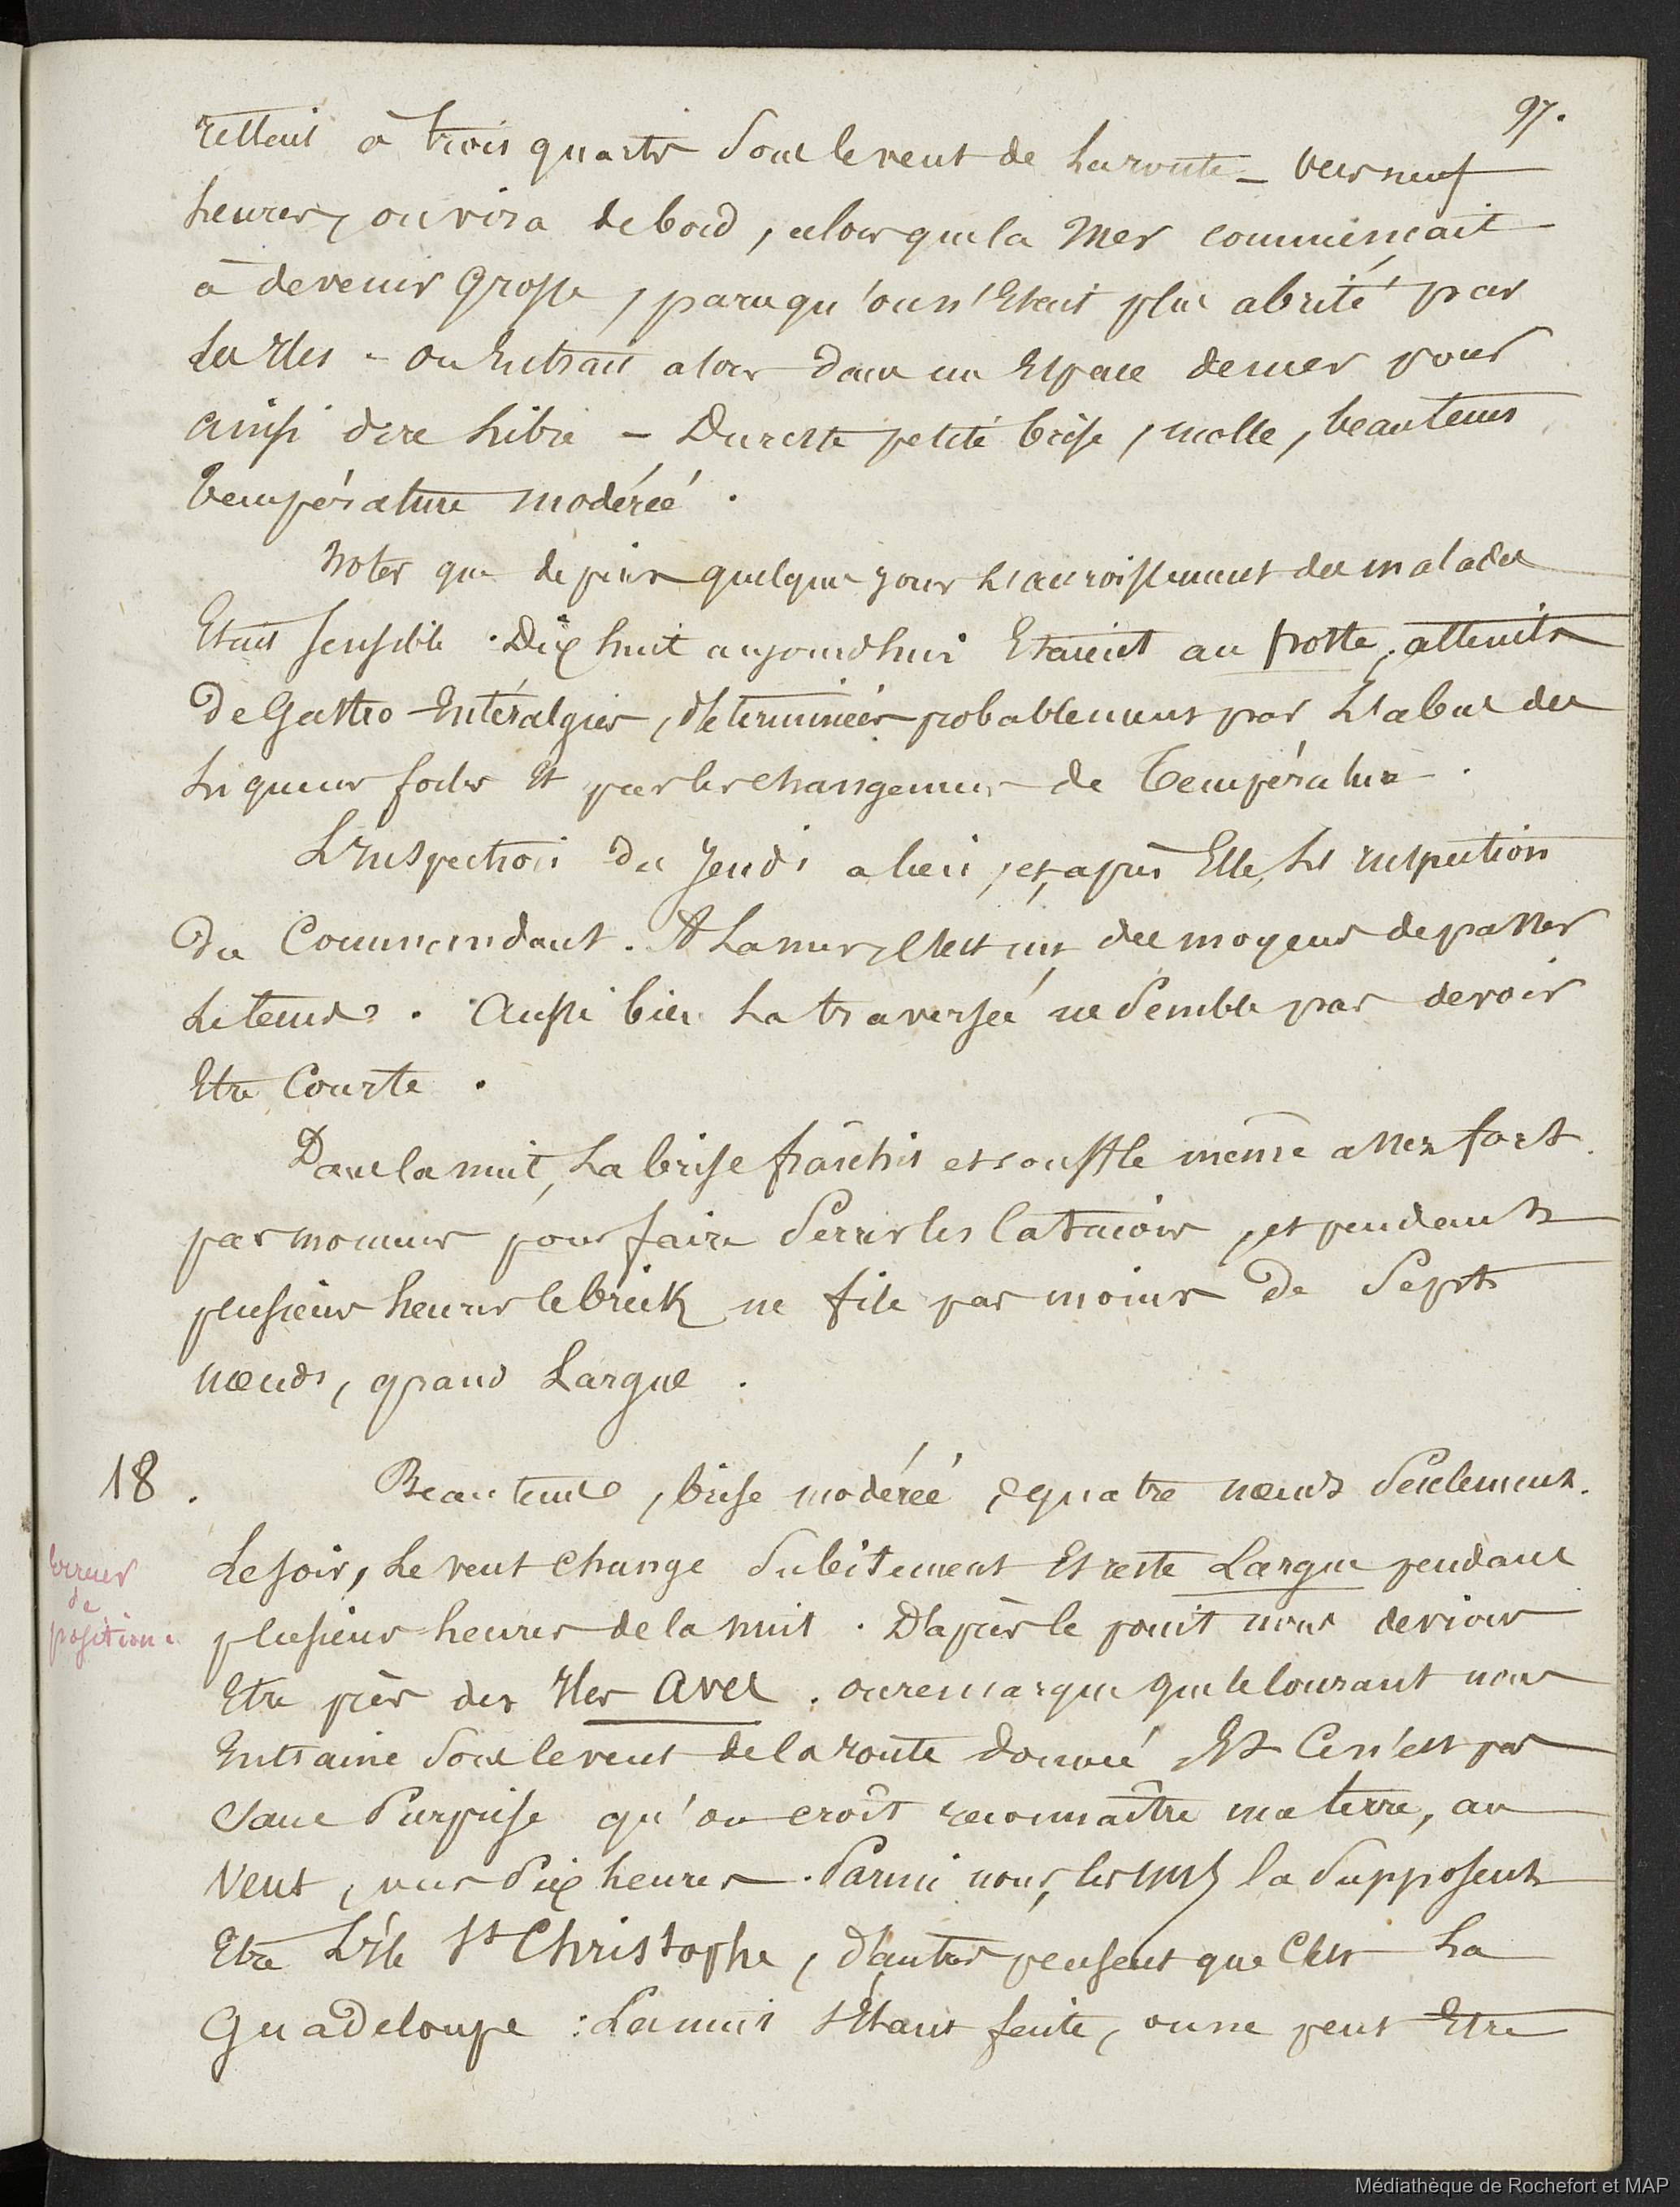 97.
restait à trois quarts sous le vent de la route – vers neuf
heures, on vira de bord, alors que la mer commençait
à devenir grosse, parce qu'on n'était plus abrité par
les Iles – on entrait alors dans un Espace de mer pour
ainsi dire libre – Du reste petite brise, molle, beau tems
température modérée.
Noter que depuis quelques jours l'accroissement des malades
Etait sensible. Dix huit aujourd'hui Etaient au poste, atteints
De Gastro-Entéralgies, déterminées probablement par l'abus des
liqueurs fortes Et par les changemens de Température.
L'Inspection du Jeudi a lieu, et, après Elle, l'Inspection
du Commandant. A la mer, c'est un des moyens de passer
le tems. Aussi bien la traversée ne semble pas devoir
Etre Courte.
Dans la nuit, la brise fraîchit et souffle même assez fort
par momens pour faire serrer les Catacois, et pendant
plusieurs heures le brick ne file pas moins de Sept
nœuds, grand Largue.
18. Beau tems, brise modérée, quatre nœuds seulement.
Erreur
de
position.
Le soir, le vent change subitement Et reste Largue pendant
plusieurs heures de la nuit. D'après le point nous devions
Etre près des Iles Aves. on remarque que le courant nous
Entraine sous le vent de la route donnée Et Ce n'est pas
sans surprise qu'on croît reconnaître une terre, au
Vent, vers six heures. Parmi nous, les uns la supposent
Etre L'île St Christophe, d'autres pensent que C'est La
Guadeloupe : La nuit s'étant faite, on ne peut Etre
Médiathèque de Rochefort et MAP